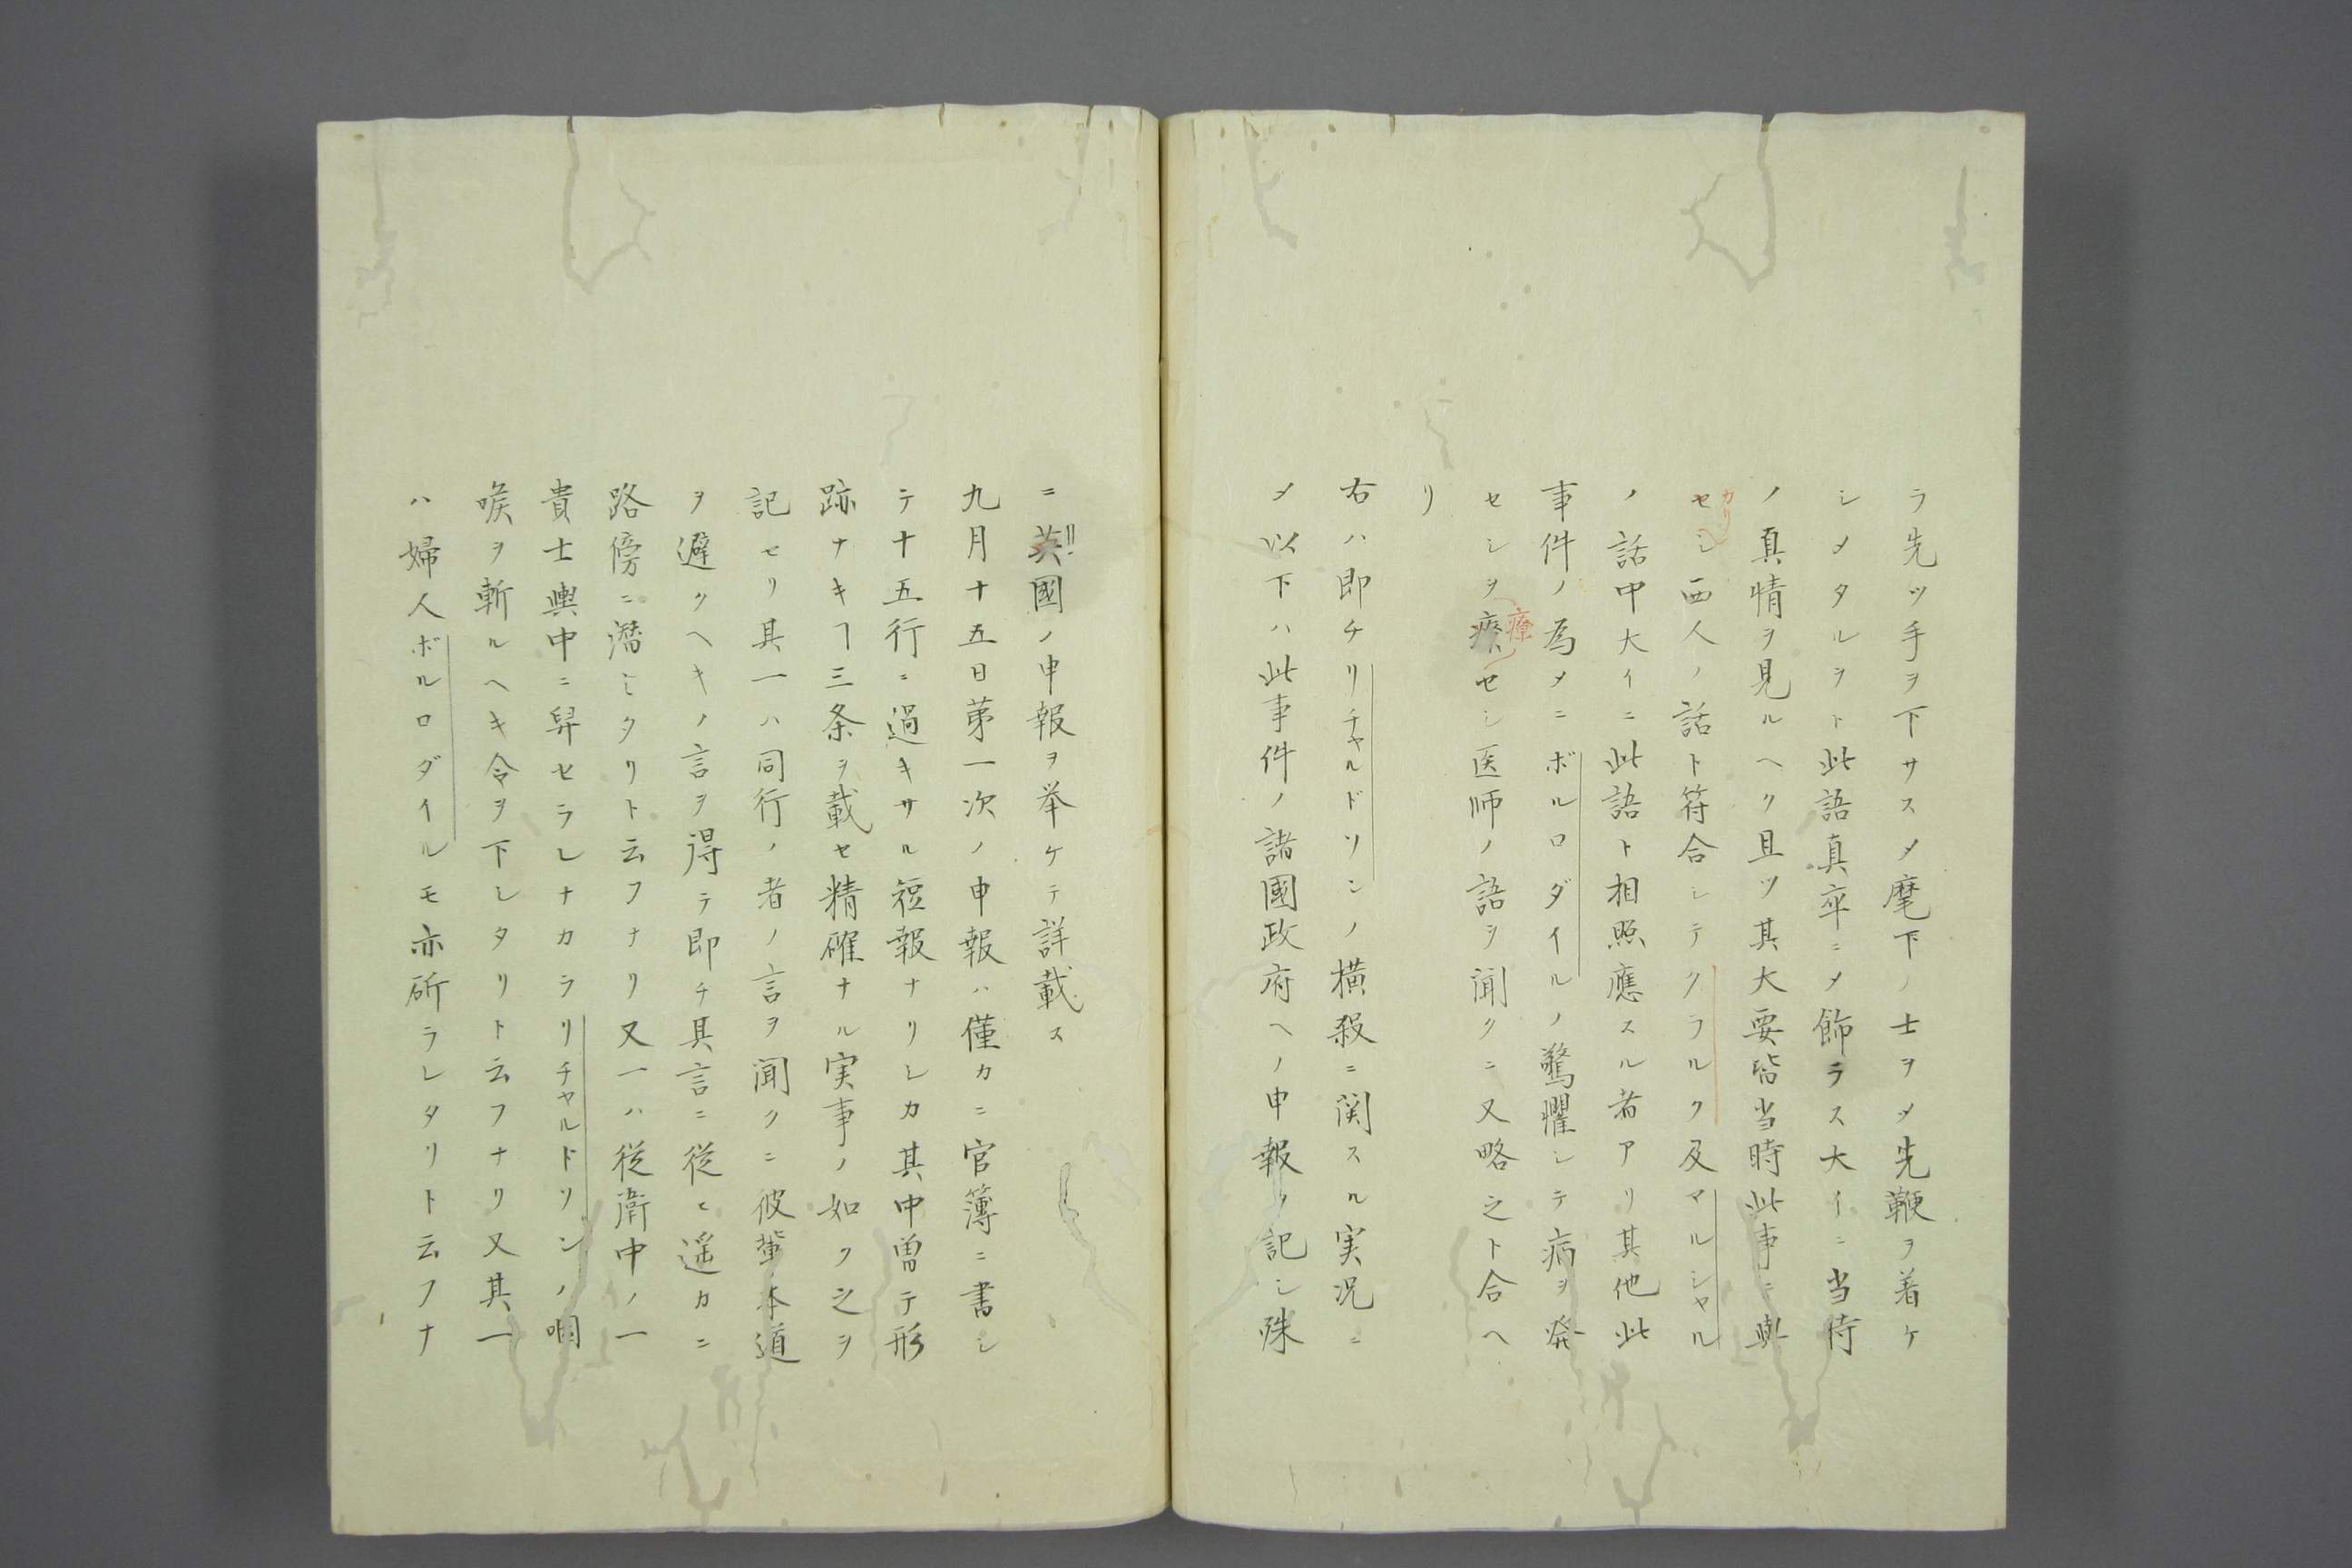 ラ先ツ手ヲ下サスメ麾下ノ士ヲメ先鞭ヲ着ケ
シメタルヲト此語真率ニメ飾ラス大イニ当侍
ノ真情ヲ見ルヘク且ツ其大要皆当時此事ニ輿
セシ西人ノ話ト符合シテクラルク及マルシャル
カリ
ノ話中大イニ此語ト相照應スル者アリ其他此
事件ノ為メニボルロダイルノ驚懼シテ病ヲ発
セシヲ療セシ医师ノ語ヲ聞クニ又略之ト合ヘ
療
リ
右ハ即チリチャルドソンノ横殺ニ関スル実况ニ
メ以下ハ此事件ノ諸國政府ヘノ申報ヲ記シ殊
ニ英國ノ申報ヲ挙ケテ詳載ス
九月十五日苐一次ノ申報ハ僅カニ官簿ニ書シ
テ十五行ニ過キサル短報ナリシカ其中曽テ形
跡ナキヿ三条ヲ載セ精確ナル実事ノ如ク之ヲ
記セリ其一ハ同行ノ者ノ言ヲ聞クニ彼輩本道
ヲ避クヘキノ言ヲ得テ即チ其言ニ従ヒ遥カニ
路傍ニ潜ミタリト云フナリ又一ハ従衛中ノ一
貴士輿中ニ舁セラレナカラリチャルドソンノ咽
喉ヲ斬ルヘキ令ヲ下シタリト云フナリ又其一
ハ婦人ボルロダイルモ亦斫ラレタリト云フナ